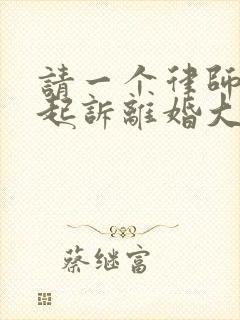 請一个律師
起訴離婚大
蔡继富